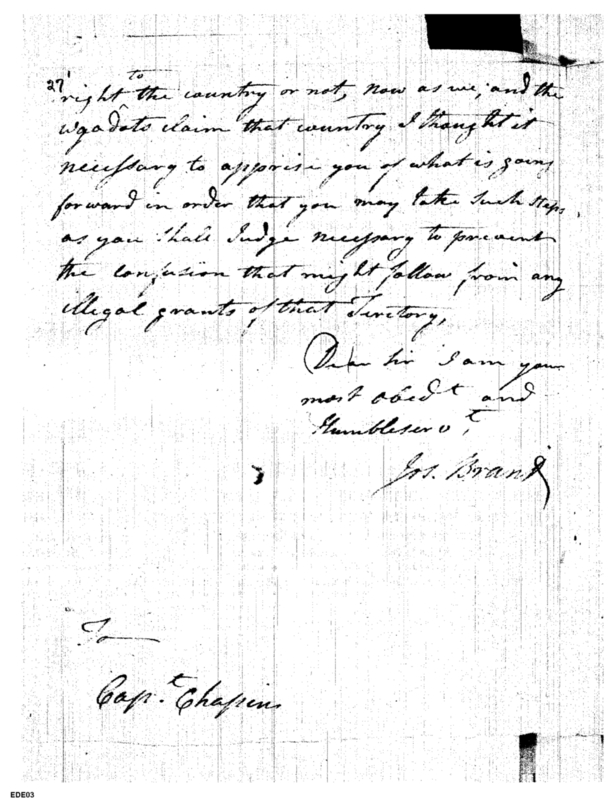 27
right to the country or not, now as we, and the
wyadots claim that country I thought it
necessary to apprise you of what is going
forward in order that you may take such steps,
as you Shall Judge necessary to prevent
the confusion that might follow from any
illegal grants of that Territory,
Dear Sir I am your
most obedt and
Humbleservt,
Jos. Brant
To
Capt. Chapin
EDE03